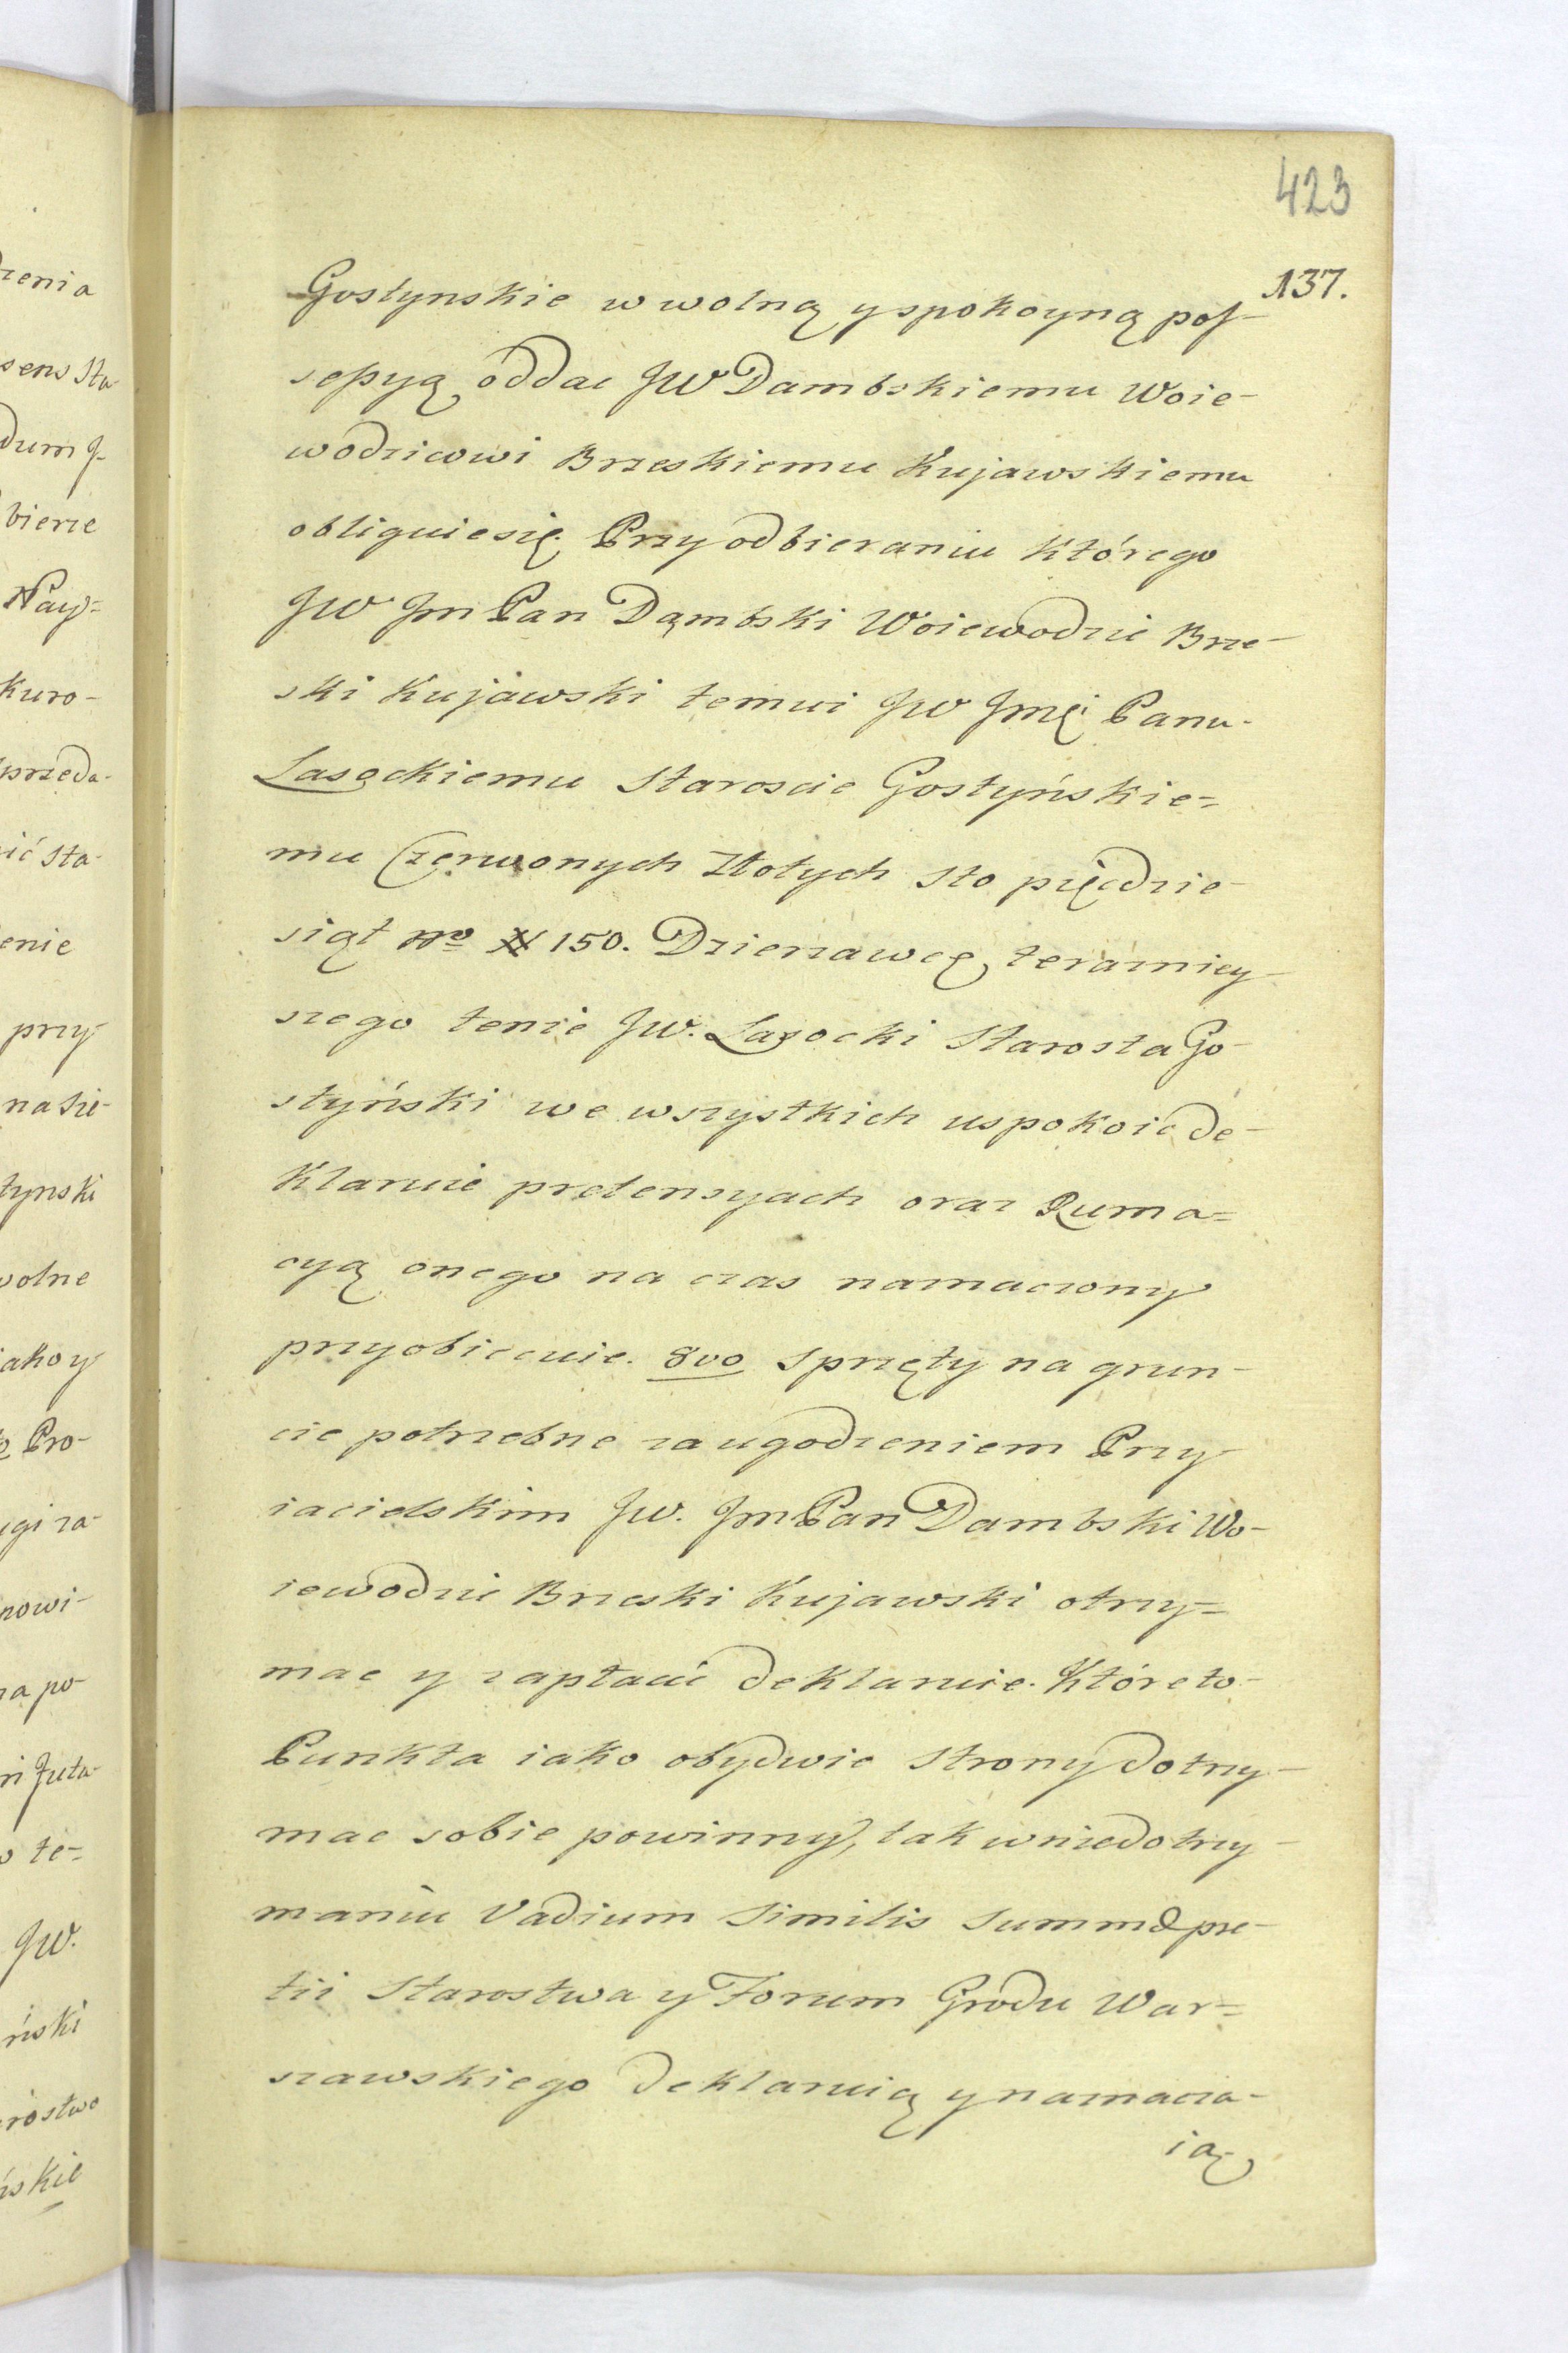 423
137.
Gostynskie w wolną y spokoyną pos-
sessyą oddac JW Dambskiemu Woie-
wodzicowi Brzeskiemu Kujawskiemu
obliguie się. Przy odbieraniu którego
JW Jm Pan Dąmbski Woiewodzic Brze-
ski Kujawski temuż JW Jmć Panu
Lasockiemu Staroscie Gostyńskie=
mu Czerwonych Złotych sto pięćdzie-
siąt No # 150. Dzierzawcę terazniey-
szego tenże JW. Lasocki Starosta Go-
styński we wszystkich uspokoic de-
klaruie pretensyach oraz Ruma=
cyą onego na czas naznaczony
przyobiecuie. 8vo Sprzęty na grun-
cie potrzebne za ugodzeniem Przy
iacielskim JW. Jm Pan Dambski Wo-
iewodzic Brzeski Kujawski otrzy=
mac y zapłacić deklaruie. Które to
Punkta iako obydwie strony dotrzy-
mac sobie powinny, tak w niedotrzy-
maniu Vadium Similis Summæ pre-
tii Starostwa y Forum Grodu War=
szawskiego deklaruią y naznacza-
ią
zenia
sens Sta-
dum J-
bierze
Nay=
Kuro-
przeda-
ić Sta-
enie
przy
na Sie-
tynski
wolne
iako y
Pro-
ugi za-
nowi-
na po-
te=
JW.
iński
rostwo
ńskie